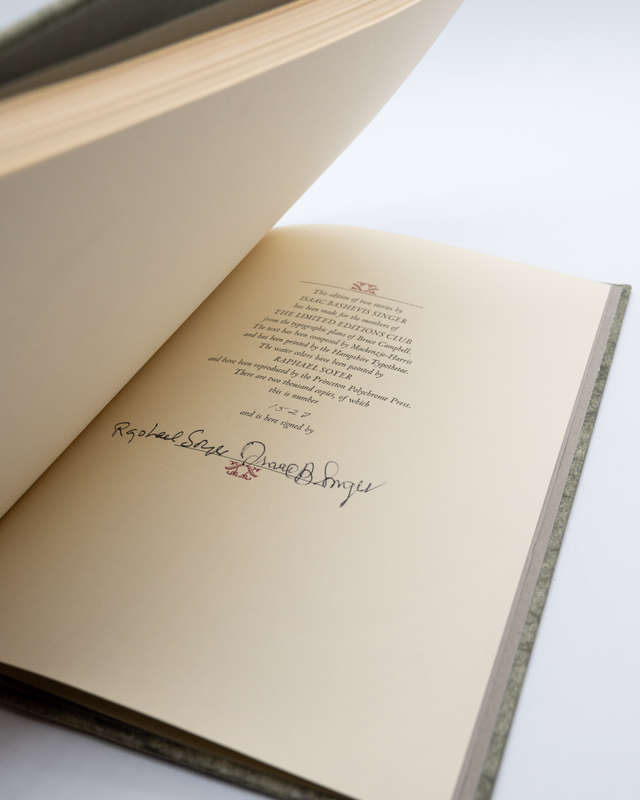 This edition of two stories by
ISAAC BASHEVIS SINGER
has been made for the members of
THE LIMITED EDITIONS CLUB
from the typographic plans of Bruce Campbell.
The text has been composed by Mackenzie-Harris
and has been printed by the Hampshire Typothetae.
The water colors have been painted by
RAPHAEL SOYER
and have been reproduced by the Princeton Polychrome Press.
There are two thousand copies, of which
this is number
1527
and is here signed by
Raphael Soyer Isaac B Singer